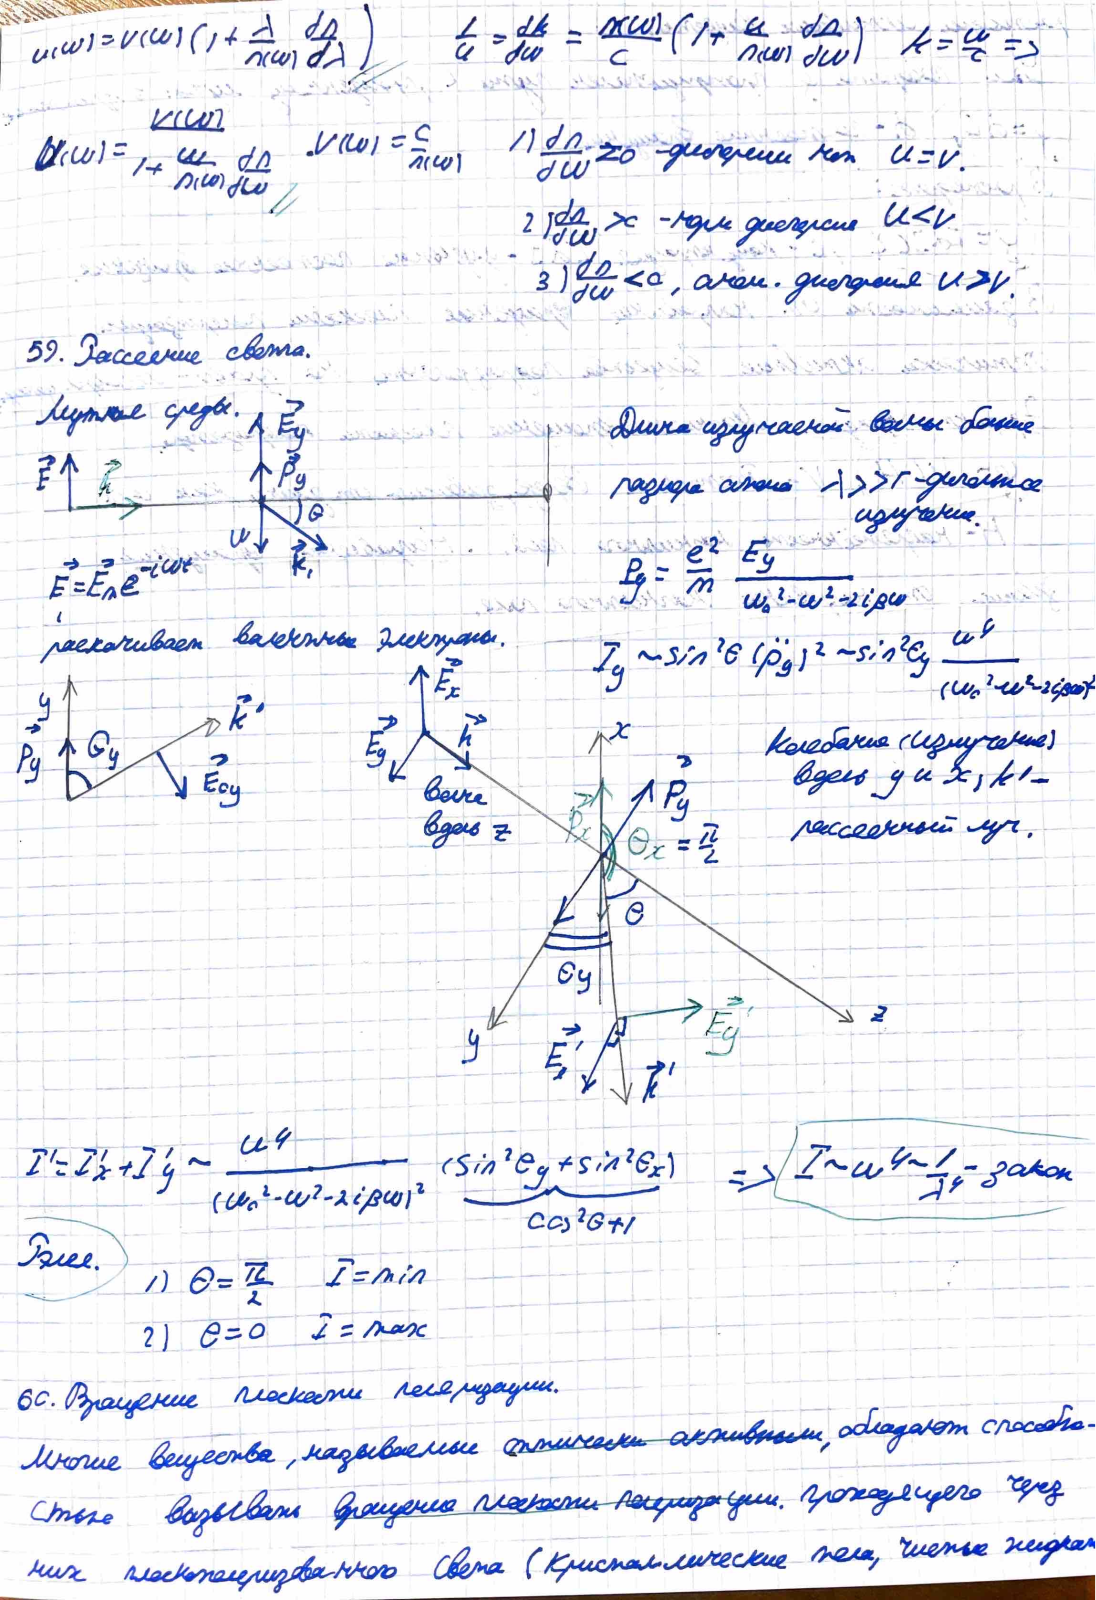 u(ω) = v(ω) (1 + λ/n(ω) dn/dλ)   1/u = dk/dω = n(ω)/c (1 + ω/n(ω) dn/dω)   k = ω/c =>
u(ω) = v(ω) / (1 + ω/n(ω) dn/dω) . v(ω) = c/n(ω)   1) dn/dω = 0 - дисперсии нет u = v.
2) dn/dω > 0 - норм дисперсия u < v
3) dn/dω < 0, аном. дисперсия u > v.
59. Рассеение света.
Мутные среды.
E→ k→ E→y P→y θ ω k→₁
Длина излучаемой волны больше
размера атома λ >> r - дипольное
излучение.
E→ = E→m e^-iωt
Py = e²/m Ey/(ω₀² - ω² - 2iβω)
раскачивает валентные электроны.
Iy ~ sin²θ (p̈y)² ~ sin²θy ω⁴/(ω₀² - ω² - 2iβω)²
y P→y θy k→' E→θy
E→x E→y k→
волна
вдоль z
Колебания (излучение)
вдоль y и x, k' -
рассеенный луч.
x P→x P→y θx = π/2
θ
θy
y z E→x' E→y' k→'
I' = I'x + I'y ~ ω⁴/(ω₀² - ω² - 2iβω)² (sin²θy + sin²θx) => I ~ ω⁴ ~ 1/λ⁴ - закон
cos²θ + 1
Рэлея.
1) θ = π/2   I = min
2) θ = 0   I = max
60. Вращение плоскости поляризации.
Многие вещества, называемые оптически активными, обладают способно-
стью вызывать вращение плоскости поляризации. проходящего через
них плоскополяризованного света (Кристаллические тела, чистые жидкос